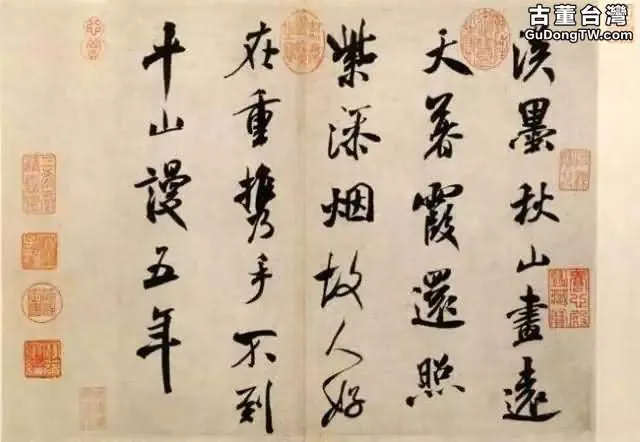 古董台灣
GuDongTW.com
淡墨秋山畫遠
天暮霞還照
紫添烟故人好
在重攜手不到
平山謾五年